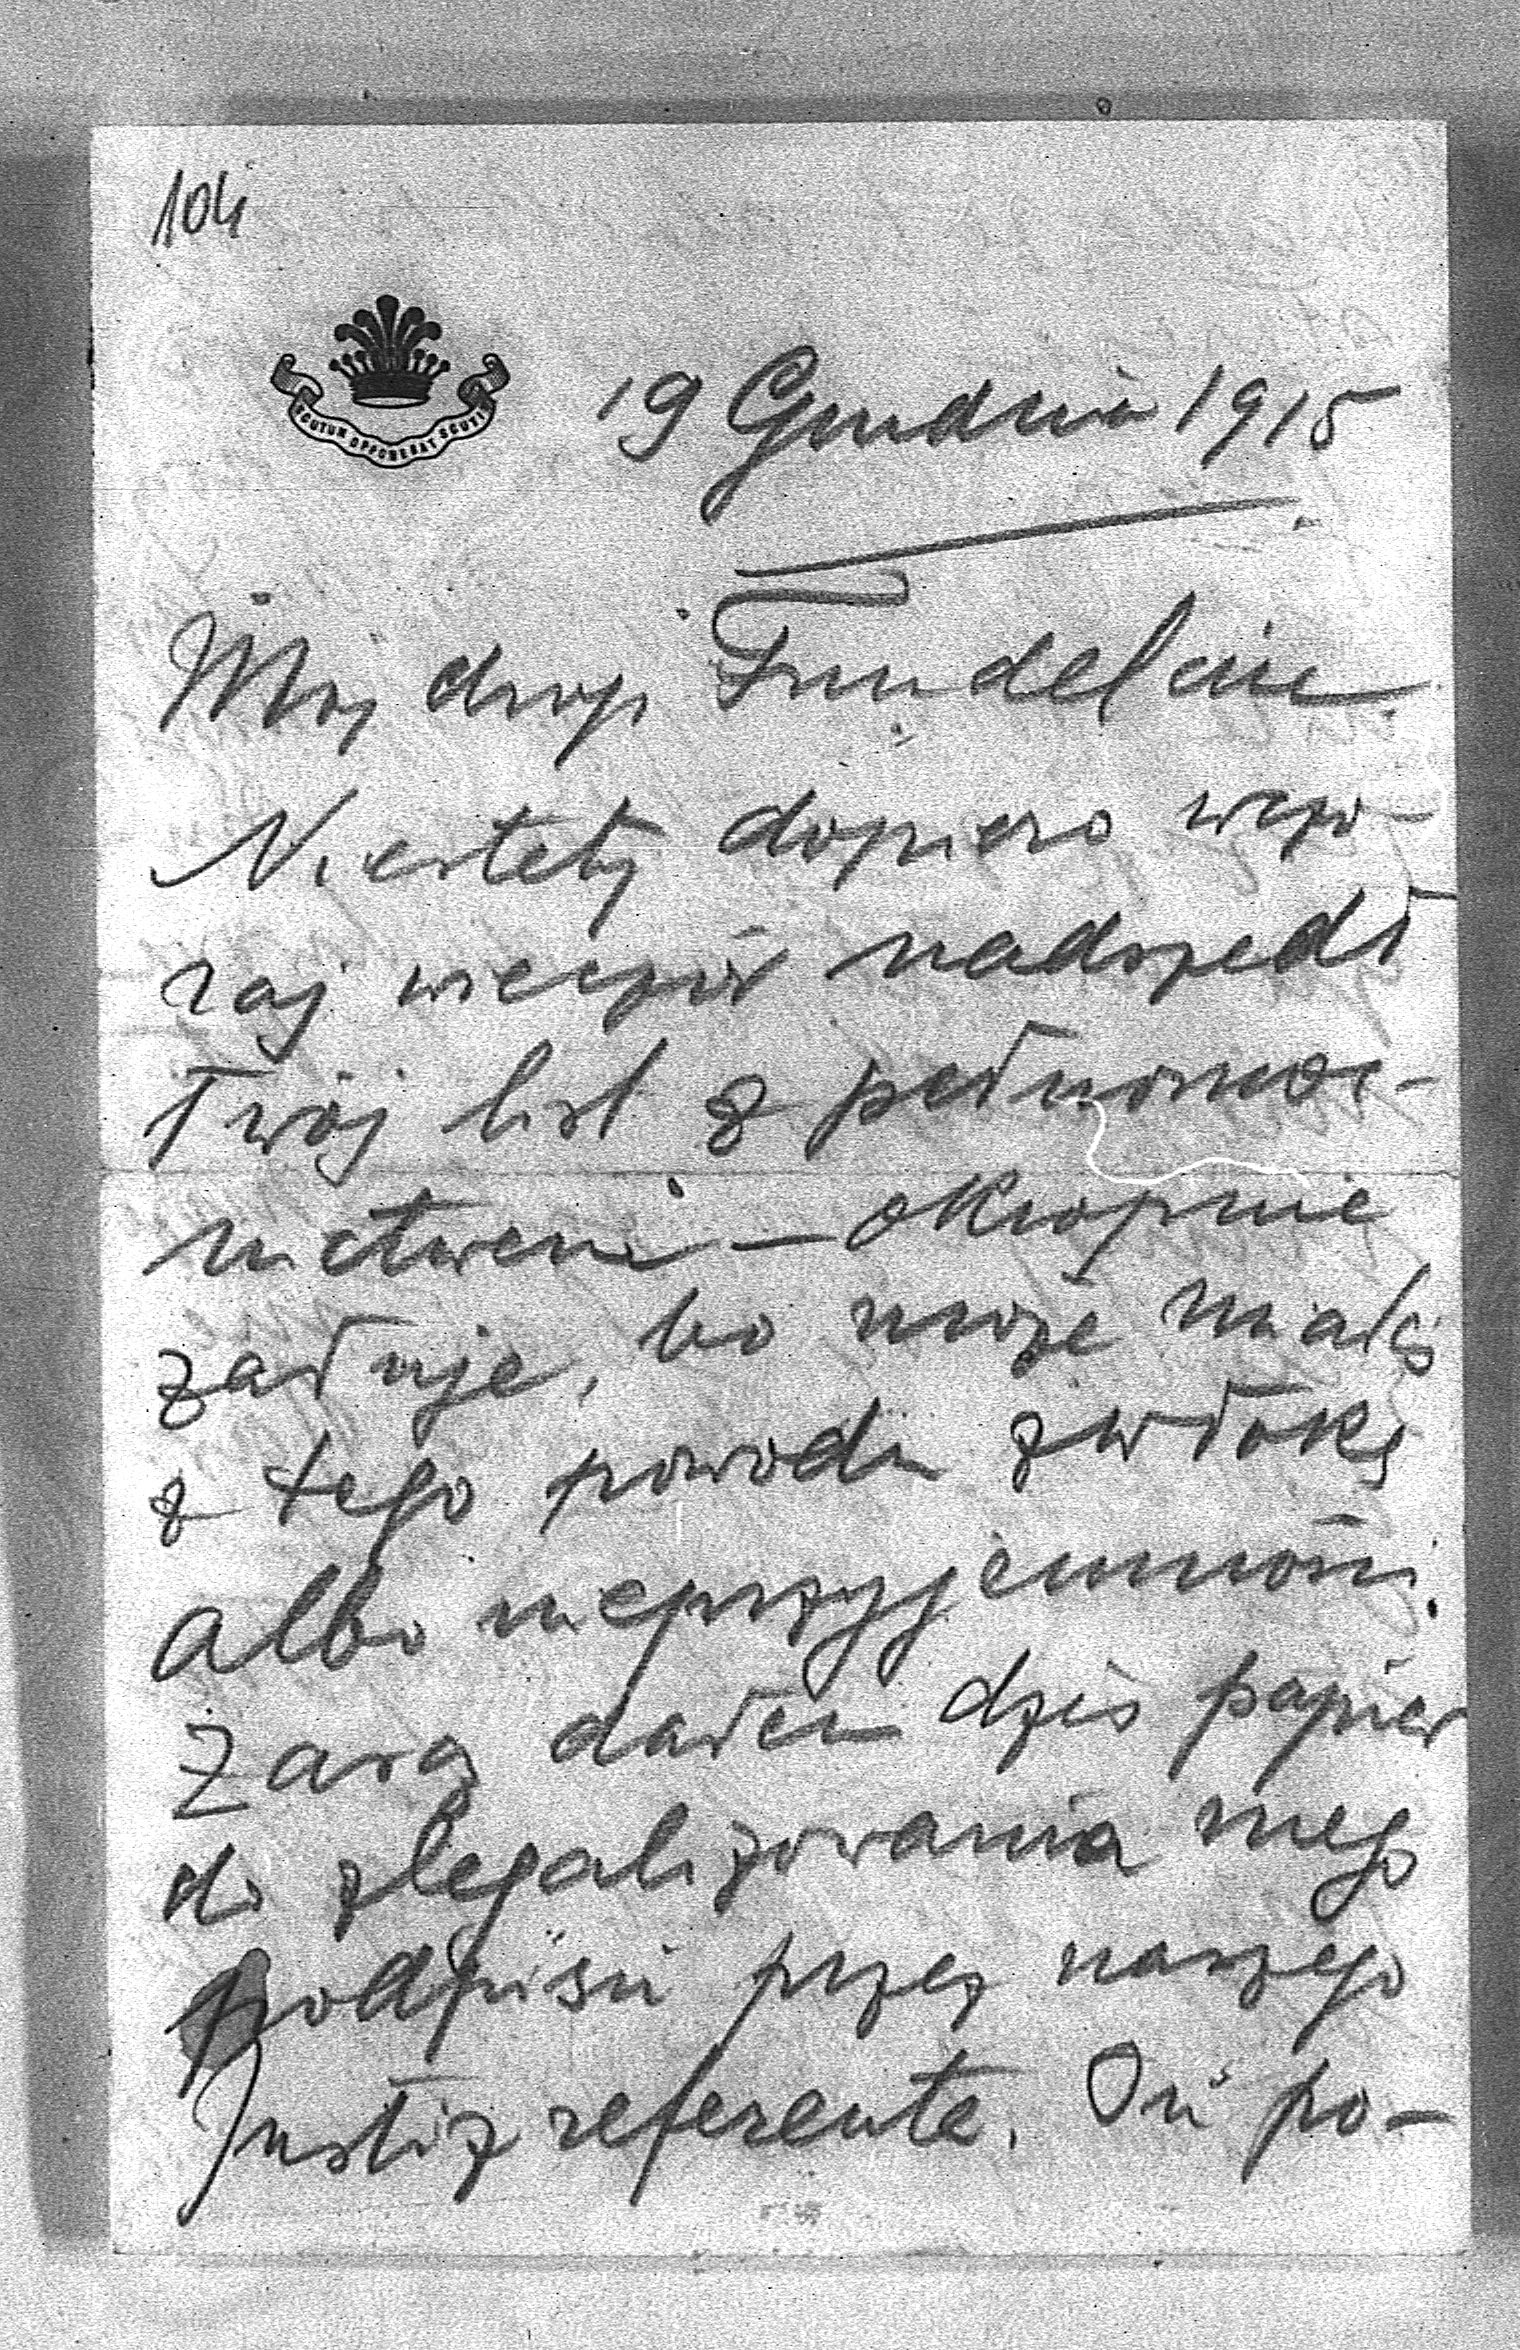 104
SCUTUM OPPONEBAT SCUTIS
19 Grudnia 1915
Mój drogi
Niestety dopiero wczo-
raj wieczór nadszedł
Twój list z pełnomoc-
nictwem – okropnie
żałuję, bo może miałeś
z tego powodu zwłokę
albo nieprzyjemności.
Zaraz dałem dziś papier
do zlegalizowania mego
podpisu przez naszego
Justizreferenta. On po-